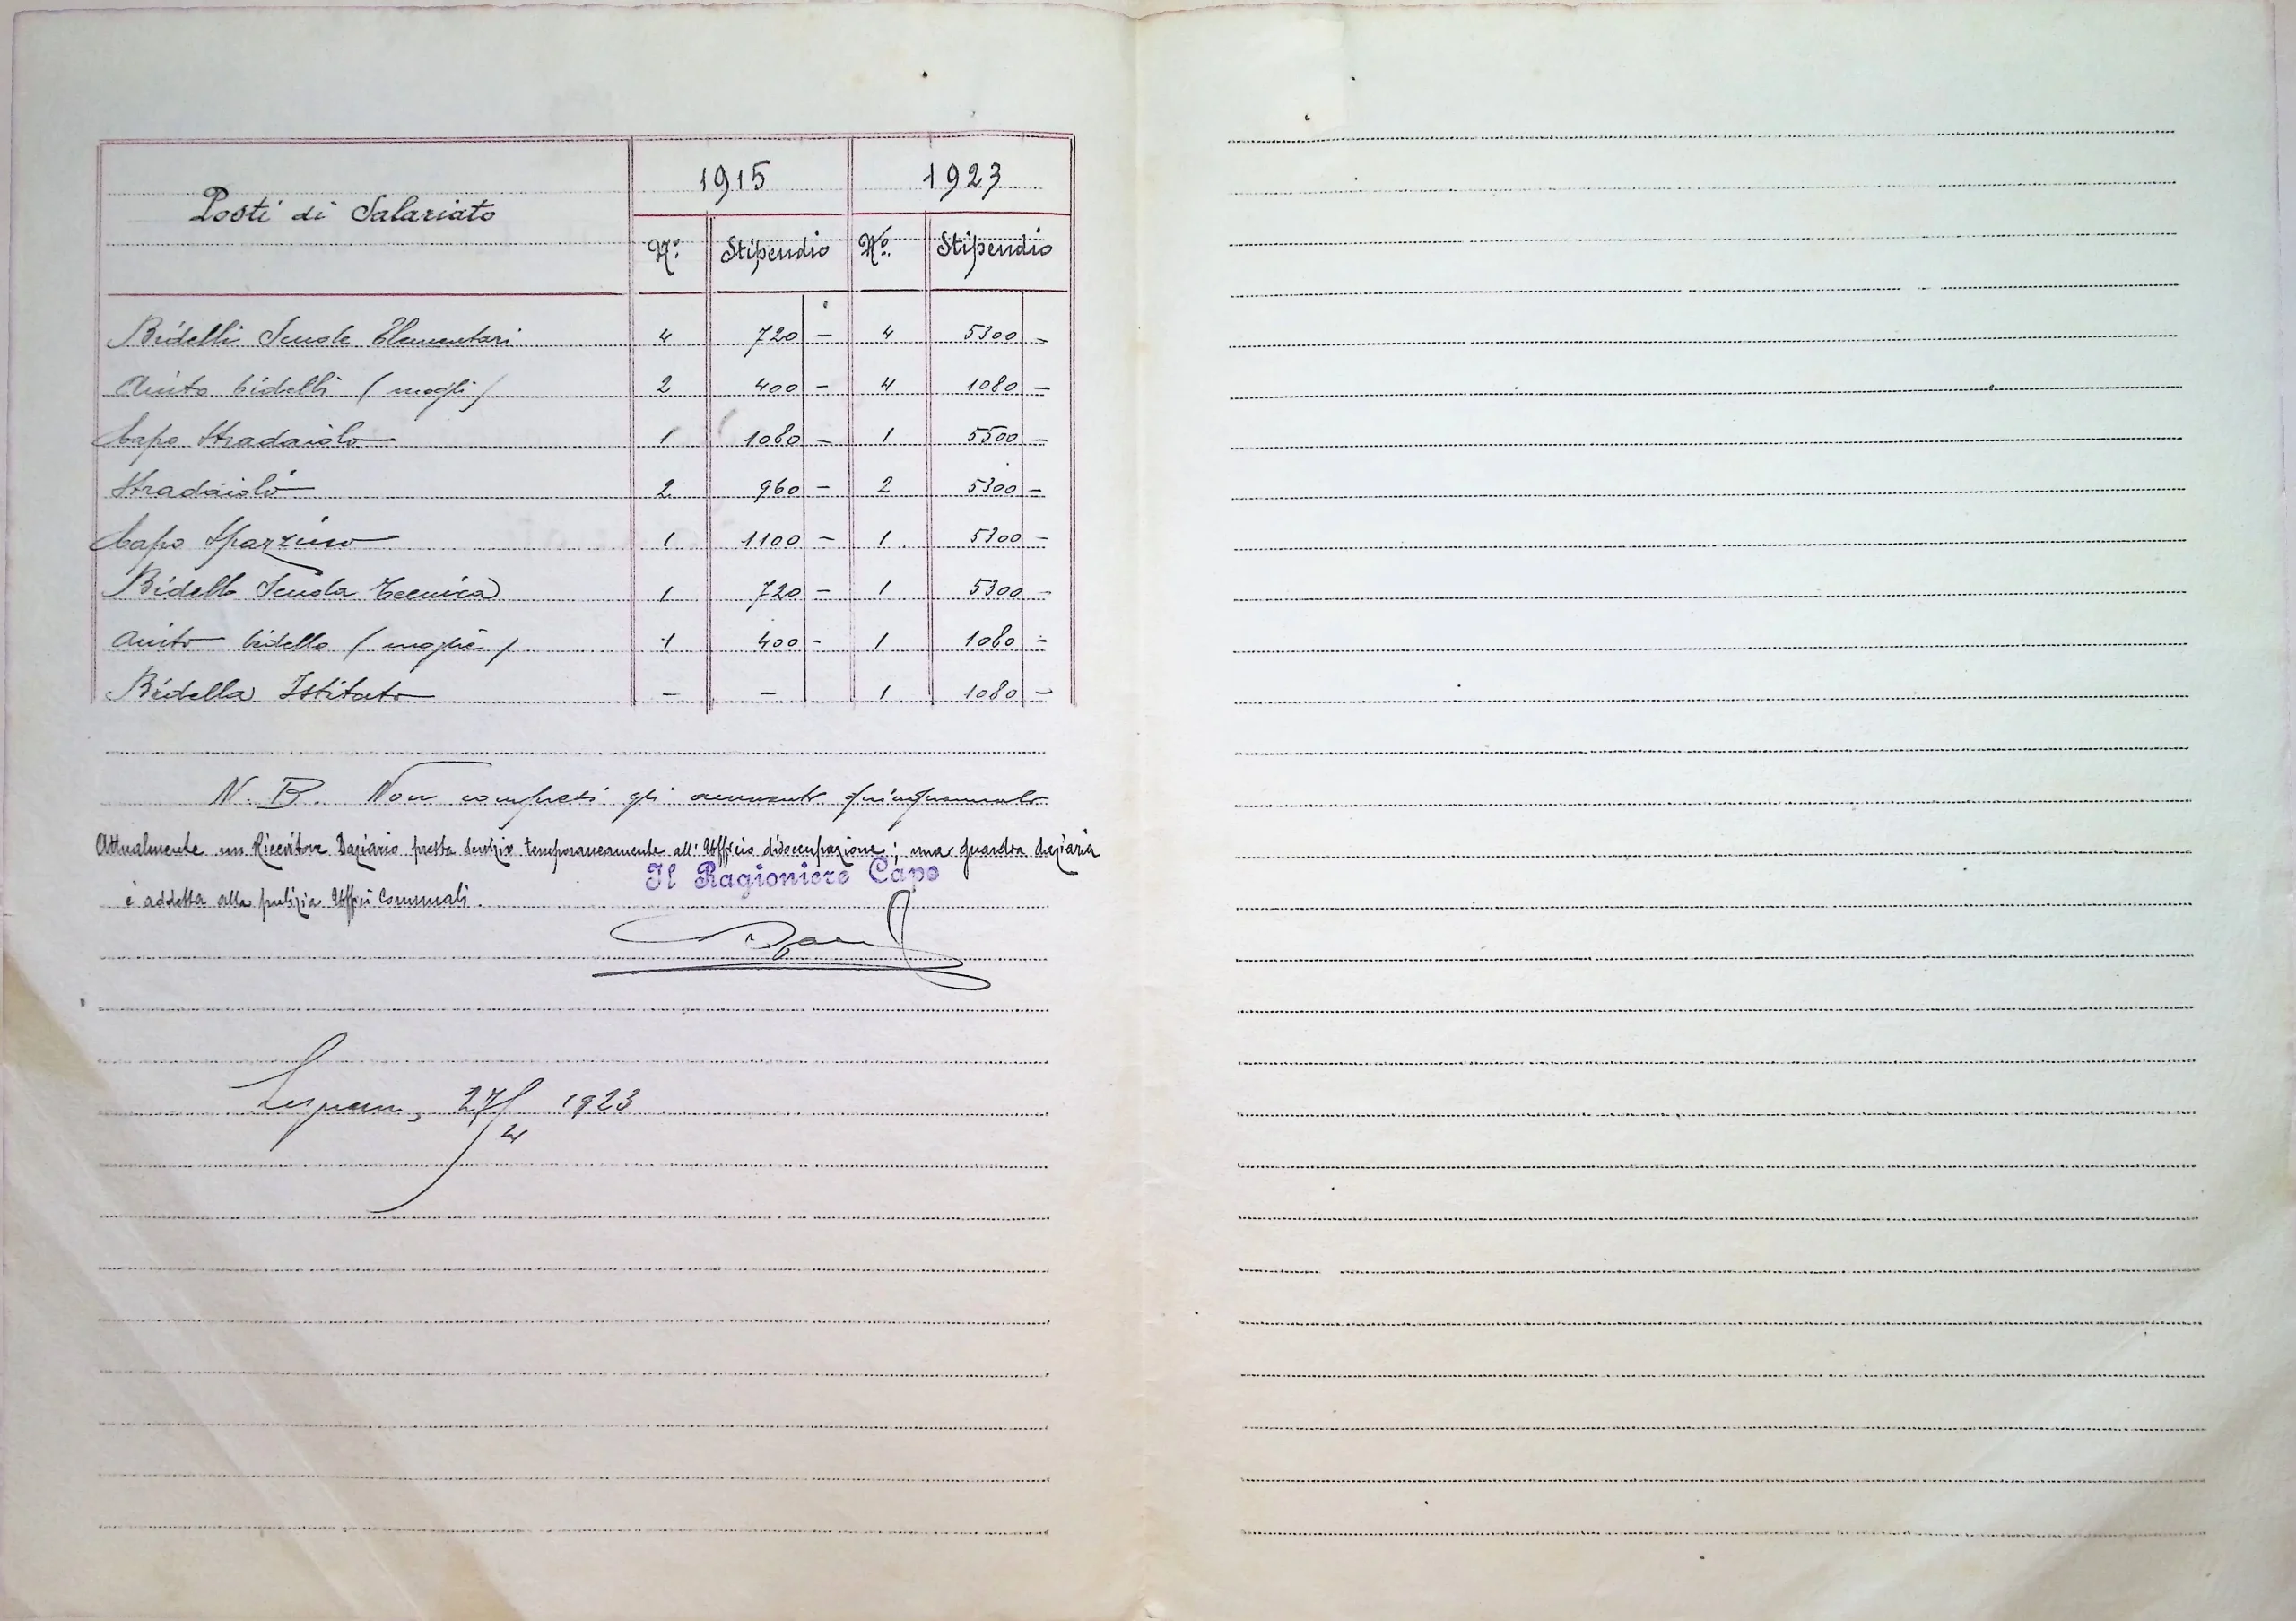 Posti di Salariato 1915 1923
N.° Stipendio N.° Stipendio
Bidelli Scuole Elementari 4 720 - 4 5300 -
Aiuto bidelli (mogli) 2 400 - 4 1080 -
Capo Stradaiolo 1 1080 - 1 5500 -
Stradaioli 2 960 - 2 5300 -
Capo Spazzino 1 1100 - 1 5300 -
Bidello Scuola Tecnica 1 720 - 1 5300 -
Aiuto bidello (moglie) 1 400 - 1 1080 -
Bidella Istituto - - 1 1080 -
N. B. Non compresi gli aumenti quinquennali
Attualmente un Ricevitore Daziario presta servizio temporaneamente all' Ufficio disoccupazione; una guardia daziaria
Il Ragioniere Capo
è addetta alla pulizia Uffici Comunali.
27/4 1923